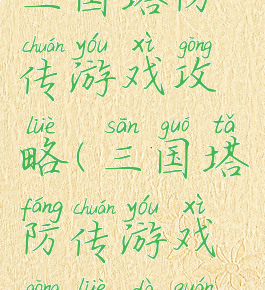 三国塔防
chuán yóu xì gōng
传游戏攻
lüè sān guó tǎ
略(三国塔
fáng chuán yóu xì
防传游戏
gōng lüè dà quán